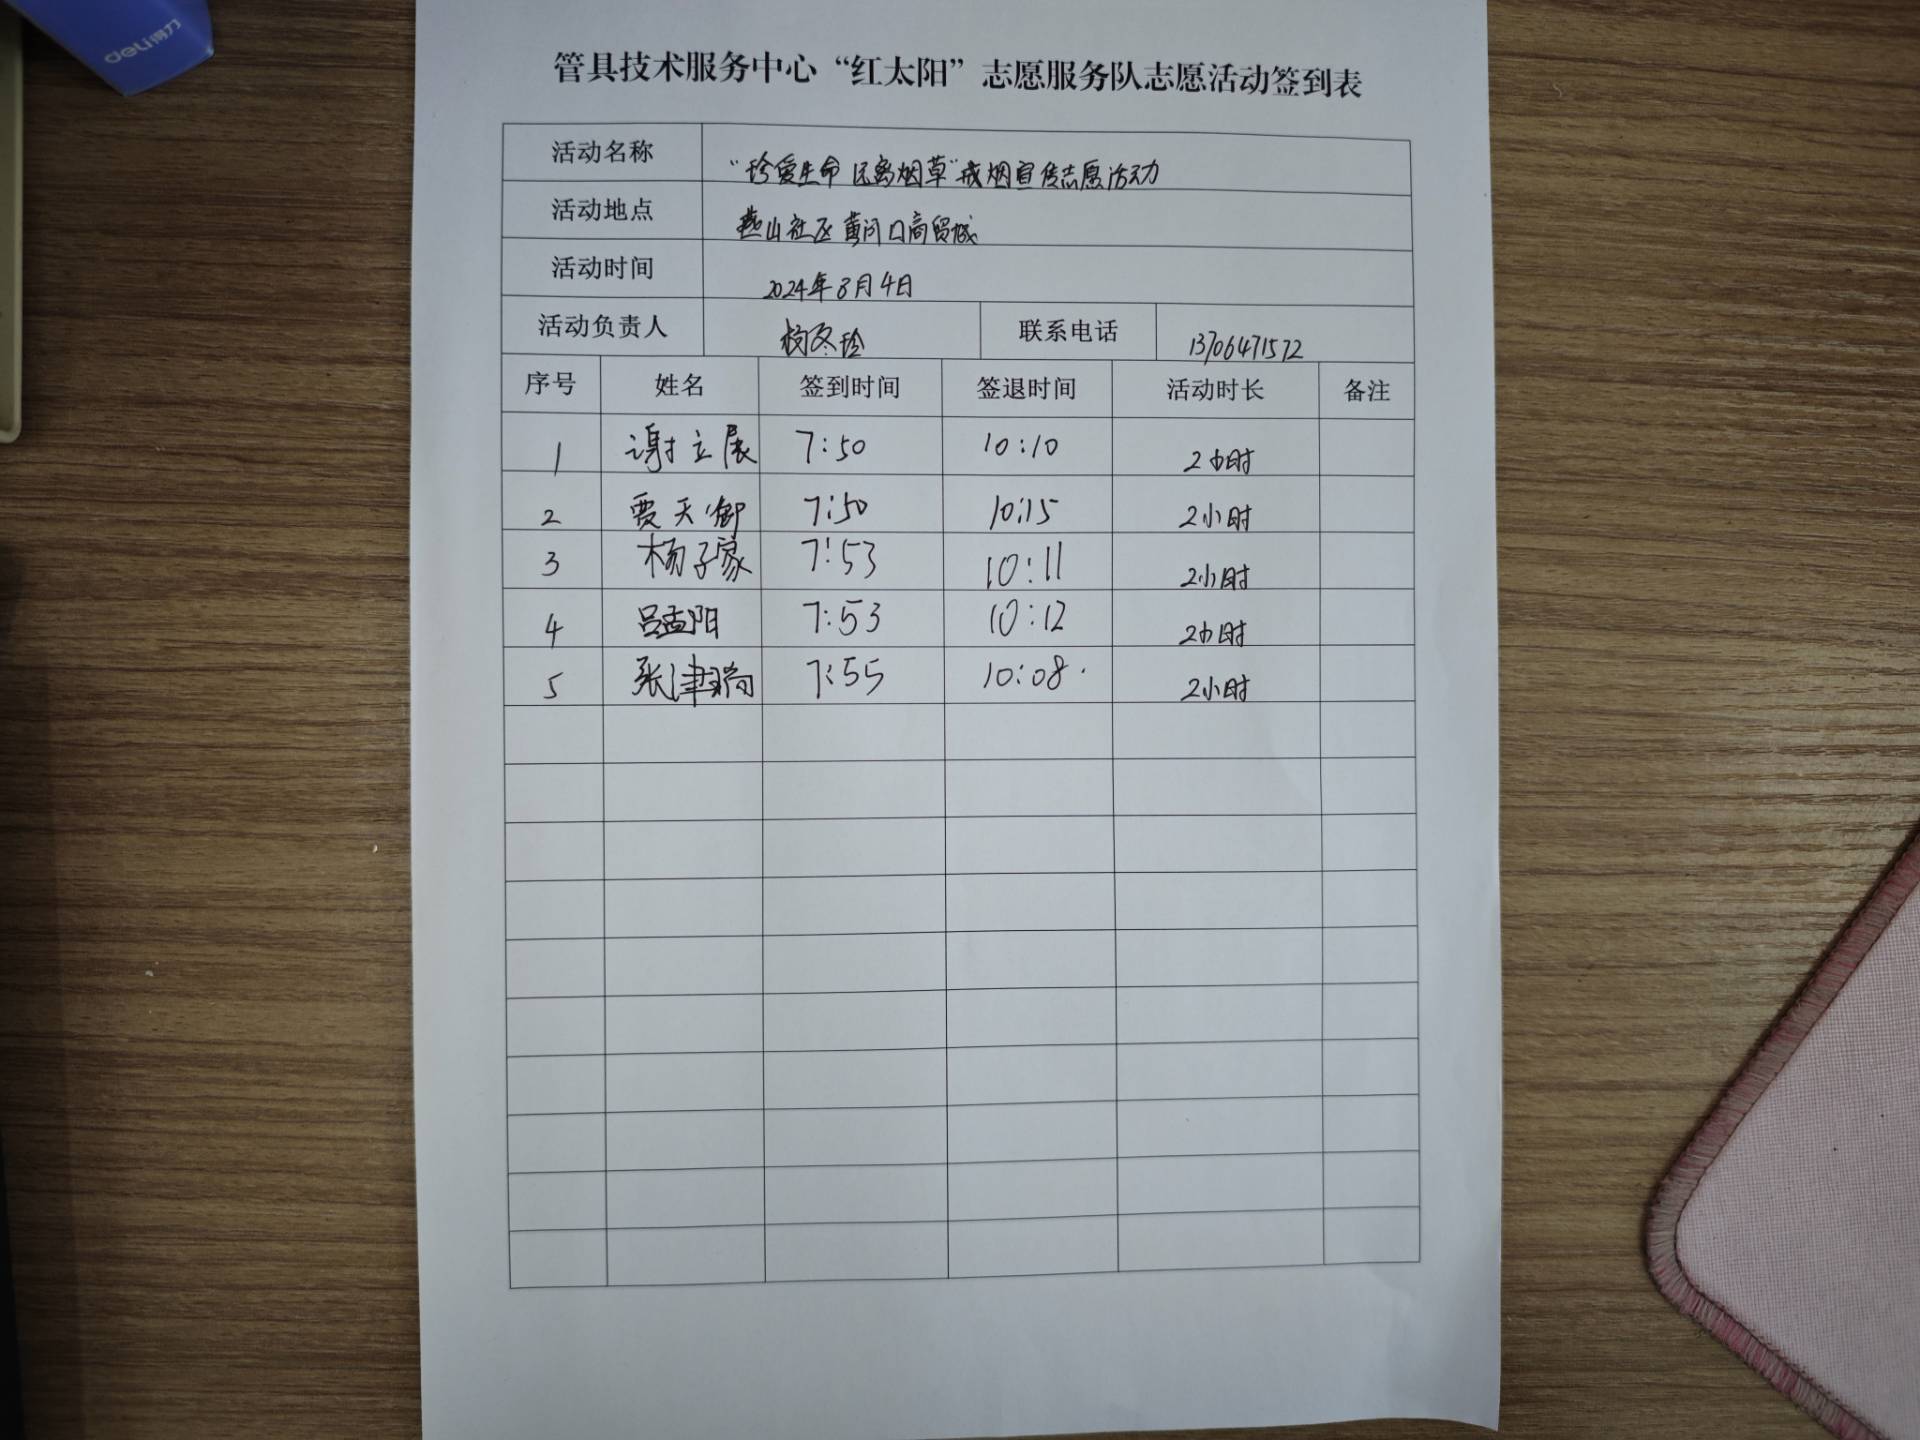 deli得力
管具技术服务中心“红太阳”志愿服务队志愿活动签到表
活动名称 “珍爱生命 远离烟草”戒烟宣传志愿活动
活动地点 燕山社区黄河口商贸城
活动时间 2024年8月4日
活动负责人 杨冬玲 联系电话 13706471572
序号 姓名 签到时间 签退时间 活动时长 备注
1 谢立展 7:50 10:10 2小时
2 贾天御 7:50 10:15 2小时
3 杨子家 7:53 10:11 2小时
4 吕孟阳 7:53 10:12 2小时
5 张津瑞 7:55 10:08 2小时